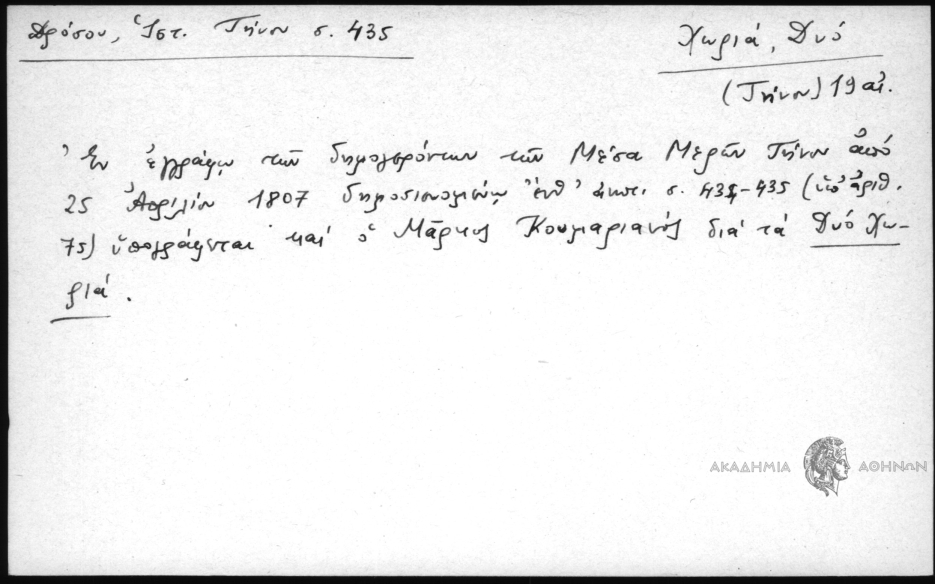 Δρόσου, Ἱστ. Τήνου σ. 435
Χωριά, Δυό
(Τήνου) 19 αἰ.
Ἐν ἐγγράφῳ τῶν δημογερόντων τῶν Μέσα Μερῶν Τήνου ἀπό
25 Ἀπριλίου 1807 δημοσιευομένῳ ἐνθ' ἀνωτ. σ. 434-435 (ὑπ' ἀριθ.
75) ὑπογράφεται καί ὁ Μᾶρκος Κουμαριανός διά τά Δυό Χω-
ριά.
ΑΚΑΔΗΜΙΑ ΑΘΗΝΩΝ